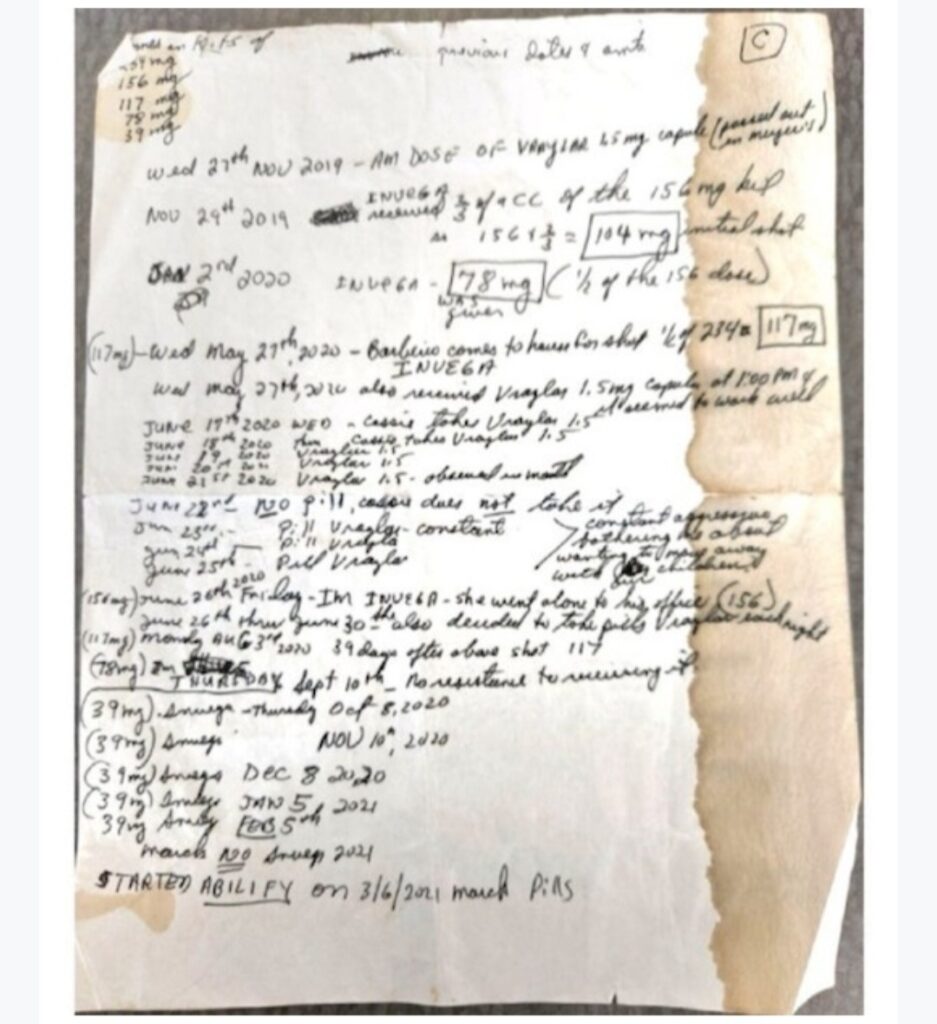 Kits of
previous dates & amts
C
156 mg
117 mg
78 mg
39 mg
wed 27th NOV 2019 - AM DOSE OF VRAYLAR 1.5 mg capule (passed out in meyer's)
NOV 29th 2019 INVEGA received 2/3 of a CC of the 156 mg kit
156 x 2/3 = 104 mg initial shot
JAN 2nd 2020 INVEGA - 78 mg (1/2 of the 156 dose)
was given
(117mg) - Wed May 27th, 2020 - Barbeiro comes to house for shot 1/2 of 234 = 117mg
INVEGA
Wed may 27th, 2020 also received Vraylar 1.5mg capule at 1:00 PM &
it seemed to work well
JUNE 17th 2020 WED - Cassie takes Vraylar 1.5
JUNE 18th 2020 Thu Cassie takes Vraylar 1.5
JUNE 19 2020 Vraylar 1.5
JUNE 20th 2020 Vraylar 1.5
JUNE 21st 2020 Vraylar 1.5 - observed in mouth
June 22nd - NO pill, cassie does not take it
Jun 23rd - Pill Vraylar - constant
constant aggressive
Jun 24th - Pill Vrayla
bothering us about
June 25th - Pill Vrayla
wanting to move away
with our children
(156mg) June 26th 2020 Friday - IM INVEGA - she went alone to his office (156)
June 26th thru June 30th also decided to take pills Vraylar each night
(117mg) Monday AUG 3rd 2020 39 days after above shot 117
(78mg)
THURSDAY Sept 10th - No resistance to receiving it
(39mg) - Invega - Thursday Oct 8, 2020
(39mg) Invega NOV 10th, 2020
(39mg) Invega Dec 8 2020
(39mg) Invega JAN 5 2021
39mg Invega FEB 5th
march NO Invega 2021
STARTED ABILIFY on 3/6/2021 march Pills